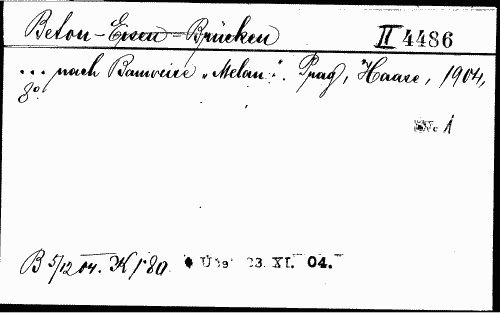 Beton-Eisen-Brücken II 4486
... nach Bauweise „Melan". Prag, Haase, 1904,
8°.
B 5/12 04. K 1·80. 23. XI. 04.